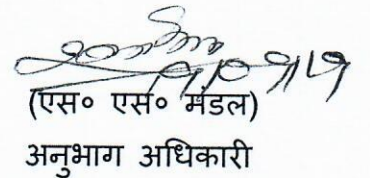 (एस० एस० मंडल)
अनुभाग अधिकारी